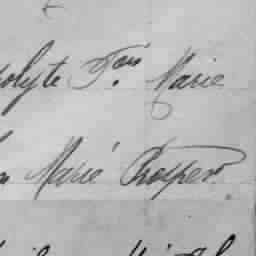 olyte F.ois Marie
Marié Prosper